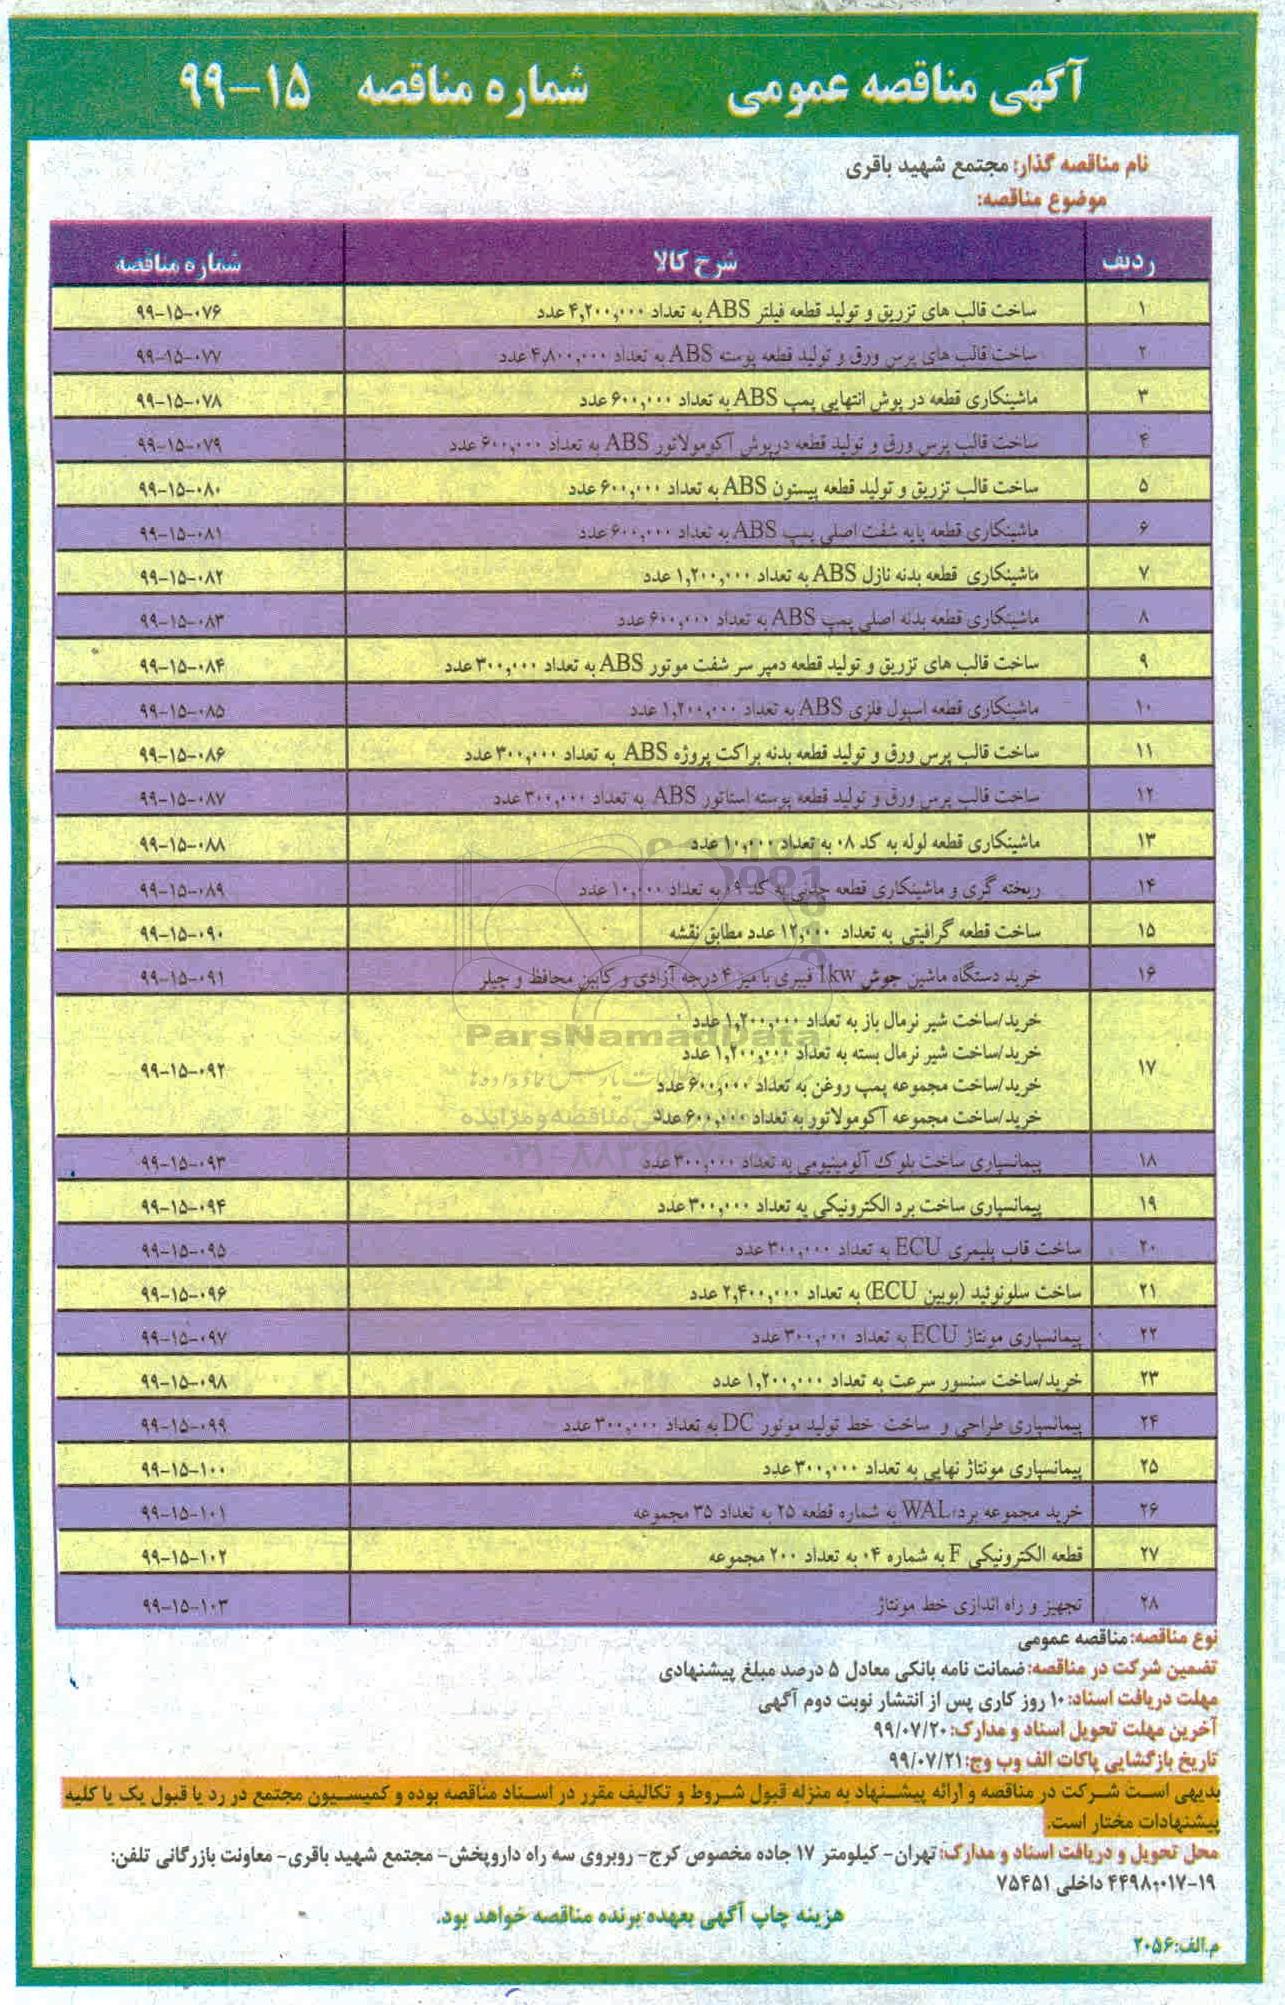 آگهی مناقصه عمومی شماره مناقصه ۱۵-۹۹
نام مناقصه گذار: مجتمع شهید باقری
موضوع مناقصه:
ردیف شرح کالا شماره مناقصه
۱ ساخت قالب های تزریق و تولید قطعه فیلتر ABS به تعداد ۴,۲۰۰,۰۰۰ عدد ۹۹-۱۵-۰۷۶
۲ ساخت قالب های پرس ورق و تولید قطعه پوسته ABS به تعداد ۴,۸۰۰,۰۰۰ عدد ۹۹-۱۵-۰۷۷
۳ ماشینکاری قطعه در پوش انتهایی پمپ ABS به تعداد ۶۰۰,۰۰۰ عدد ۹۹-۱۵-۰۷۸
۴ ساخت قالب پرس ورق و تولید قطعه درپوش آکومولاتور ABS به تعداد ۶۰۰,۰۰۰ عدد ۹۹-۱۵-۰۷۹
۵ ساخت قالب تزریق و تولید قطعه پیستون ABS به تعداد ۶۰۰,۰۰۰ عدد ۹۹-۱۵-۰۸۰
۶ ماشینکاری قطعه پایه شفت اصلی پمپ ABS به تعداد ۶۰۰,۰۰۰ عدد ۹۹-۱۵-۰۸۱
۷ ماشینکاری قطعه بدنه نازل ABS به تعداد ۱,۲۰۰,۰۰۰ عدد ۹۹-۱۵-۰۸۲
۸ ماشینکاری قطعه بدنه اصلی پمپ ABS به تعداد ۶۰۰,۰۰۰ عدد ۹۹-۱۵-۰۸۳
۹ ساخت قالب های تزریق و تولید قطعه دمپر سر شفت موتور ABS به تعداد ۳۰۰,۰۰۰ عدد ۹۹-۱۵-۰۸۴
۱۰ ماشینکاری قطعه اسپول فلزی ABS به تعداد ۱,۲۰۰,۰۰۰ عدد ۹۹-۱۵-۰۸۵
۱۱ ساخت قالب پرس ورق و تولید قطعه بدنه براکت پروژه ABS به تعداد ۳۰۰,۰۰۰ عدد ۹۹-۱۵-۰۸۶
۱۲ ساخت قالب پرس ورق و تولید قطعه پوسته استاتور ABS به تعداد ۳۰۰,۰۰۰ عدد ۹۹-۱۵-۰۸۷
۱۳ ماشینکاری قطعه لوله به کد ۰۸ به تعداد ۱۰,۰۰۰ عدد ۹۹-۱۵-۰۸۸
۱۴ ریخته گری و ماشینکاری قطعه چدنی به کد ۰۹ به تعداد ۱۰,۰۰۰ عدد ۹۹-۱۵-۰۸۹
۱۵ ساخت قطعه گرافیتی به تعداد ۱۲,۰۰۰ عدد مطابق نقشه ۹۹-۱۵-۰۹۰
۱۶ خرید دستگاه ماشین جوش 1kw فیبری با میز ۴ درجه آزادی و کابین محافظ و چیلر ۹۹-۱۵-۰۹۱
خرید/ساخت شیر نرمال باز به تعداد ۱,۲۰۰,۰۰۰ عدد
خرید/ساخت شیر نرمال بسته به تعداد ۱,۲۰۰,۰۰۰ عدد
۱۷ ۹۹-۱۵-۰۹۲
خرید/ساخت مجموعه پمپ روغن به تعداد ۶۰۰,۰۰۰ عدد
خرید/ساخت مجموعه آکومولاتور به تعداد ۶۰۰,۰۰۰ عدد
ParsNamadData
۱۸ پیمانسپاری ساخت بلوک آلومینیومی به تعداد ۳۰۰,۰۰۰ عدد ۹۹-۱۵-۰۹۳
۱۹ پیمانسپاری ساخت برد الکترونیکی به تعداد ۳۰۰,۰۰۰ عدد ۹۹-۱۵-۰۹۴
۲۰ ساخت قاب پلیمری ECU به تعداد ۳۰۰,۰۰۰ عدد ۹۹-۱۵-۰۹۵
۲۱ ساخت سلونوئید (بوبین ECU) به تعداد ۲,۴۰۰,۰۰۰ عدد ۹۹-۱۵-۰۹۶
۲۲ پیمانسپاری مونتاژ ECU به تعداد ۳۰۰,۰۰۰ عدد ۹۹-۱۵-۰۹۷
۲۳ خرید/ساخت سنسور سرعت به تعداد ۱,۲۰۰,۰۰۰ عدد ۹۹-۱۵-۰۹۸
۲۴ پیمانسپاری طراحی و ساخت خط تولید موتور DC به تعداد ۳۰۰,۰۰۰ عدد ۹۹-۱۵-۰۹۹
۲۵ پیمانسپاری مونتاژ نهایی به تعداد ۳۰۰,۰۰۰ عدد ۹۹-۱۵-۱۰۰
۲۶ خرید مجموعه برد WAL به شماره قطعه ۲۵ به تعداد ۳۵ مجموعه ۹۹-۱۵-۱۰۱
۲۷ قطعه الکترونیکی F به شماره ۰۴ به تعداد ۲۰۰ مجموعه ۹۹-۱۵-۱۰۲
۲۸ تجهیز و راه اندازی خط مونتاژ ۹۹-۱۵-۱۰۳
نوع مناقصه: مناقصه عمومی
تضمین شرکت در مناقصه: ضمانت نامه بانکی معادل ۵ درصد مبلغ پیشنهادی
مهلت دریافت اسناد: ۱۰ روز کاری پس از انتشار نوبت دوم آگهی
آخرین مهلت تحویل اسناد و مدارک: ۹۹/۰۷/۲۰
تاریخ بازگشایی پاکات الف وب وج: ۹۹/۰۷/۲۱
بدیهی است شرکت در مناقصه و ارائه پیشنهاد به منزله قبول شروط و تکالیف مقرر در اسناد مناقصه بوده و کمیسیون مجتمع در رد یا قبول یک یا کلیه
پیشنهادات مختار است.
محل تحویل و دریافت اسناد و مدارک: تهران- کیلومتر ۱۷ جاده مخصوص کرج- روبروی سه راه داروپخش- مجتمع شهید باقری- معاونت بازرگانی تلفن:
۴۴۹۸۰۰۱۷-۱۹ داخلی ۷۵۴۵۱
هزینه چاپ آگهی بعهده برنده مناقصه خواهد بود.
م.الف: ۲۰۵۶